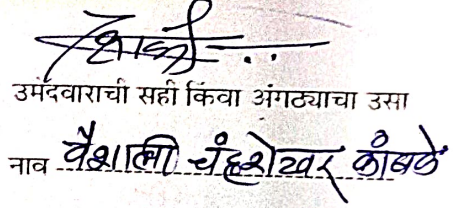 उमेदवाराची सही किंवा अंगठ्याचा उसा
नाव वैशाली चंद्रशेखर कांबळे